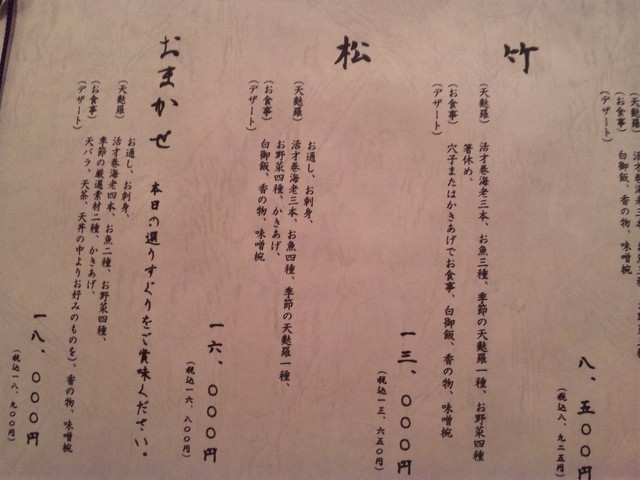 (天麩羅)
(お食事) 白御飯、香の物、味噌椀
(デザート)
八、五〇〇円
(税込八、九二五円)
竹
(天麩羅) 活才巻海老三本、お魚三種、季節の天麩羅一種、お野菜四種
箸休め、
(お食事) 穴子またはかきあげでお食事、白御飯、香の物、味噌椀
(デザート)
一三、〇〇〇円
(税込一三、六五〇円)
松
お通し、お刺身、
(天麩羅) 活才巻海老三本、お魚四種、季節の天麩羅一種、
お野菜四種、かきあげ、
(お食事) 白御飯、香の物、味噌椀
(デザート)
一六、〇〇〇円
(税込一六、八〇〇円)
おまかせ 本日の選りすぐりをご賞味ください。
お通し、お刺身、
(天麩羅) 活才巻海老四本、お魚二種、お野菜四種、
季節の厳選素材二種、かきあげ、
(お食事) 天バラ、天茶、天丼の中よりお好みのものを)、香の物、味噌椀
(デザート)
一八、〇〇〇円
(税込一八、九〇〇円)